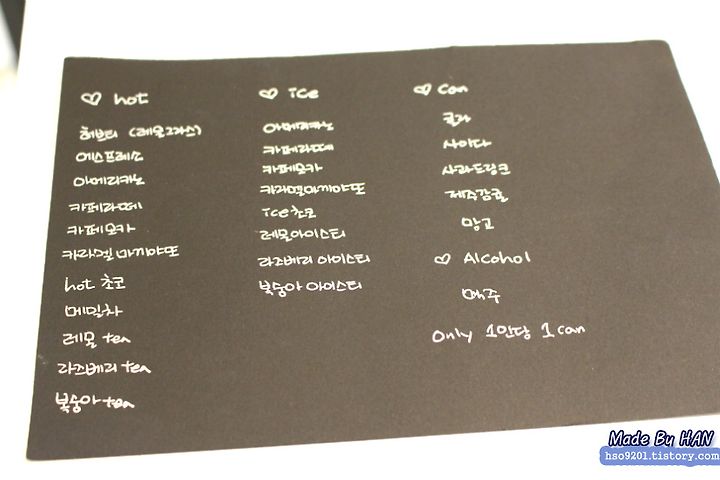 ♡ hot
허브티 (레몬그라스)
에스프레소
아메리카노
카페라떼
카페모카
카라멜 마끼야또
hot 초코
메밀차
레몬 tea
라즈베리 tea
복숭아 tea
♡ ice
아메리카노
카페라떼
카페모카
카라멜마끼야또
ice 초코
레몬아이스티
라즈베리 아이스티
복숭아 아이스티
♡ Can
콜라
사이다
사과드링크
제주감귤
망고
♡ Alcohol
맥주
Only 1인당 1 can
Made By HAN
hso9201.tistory.com